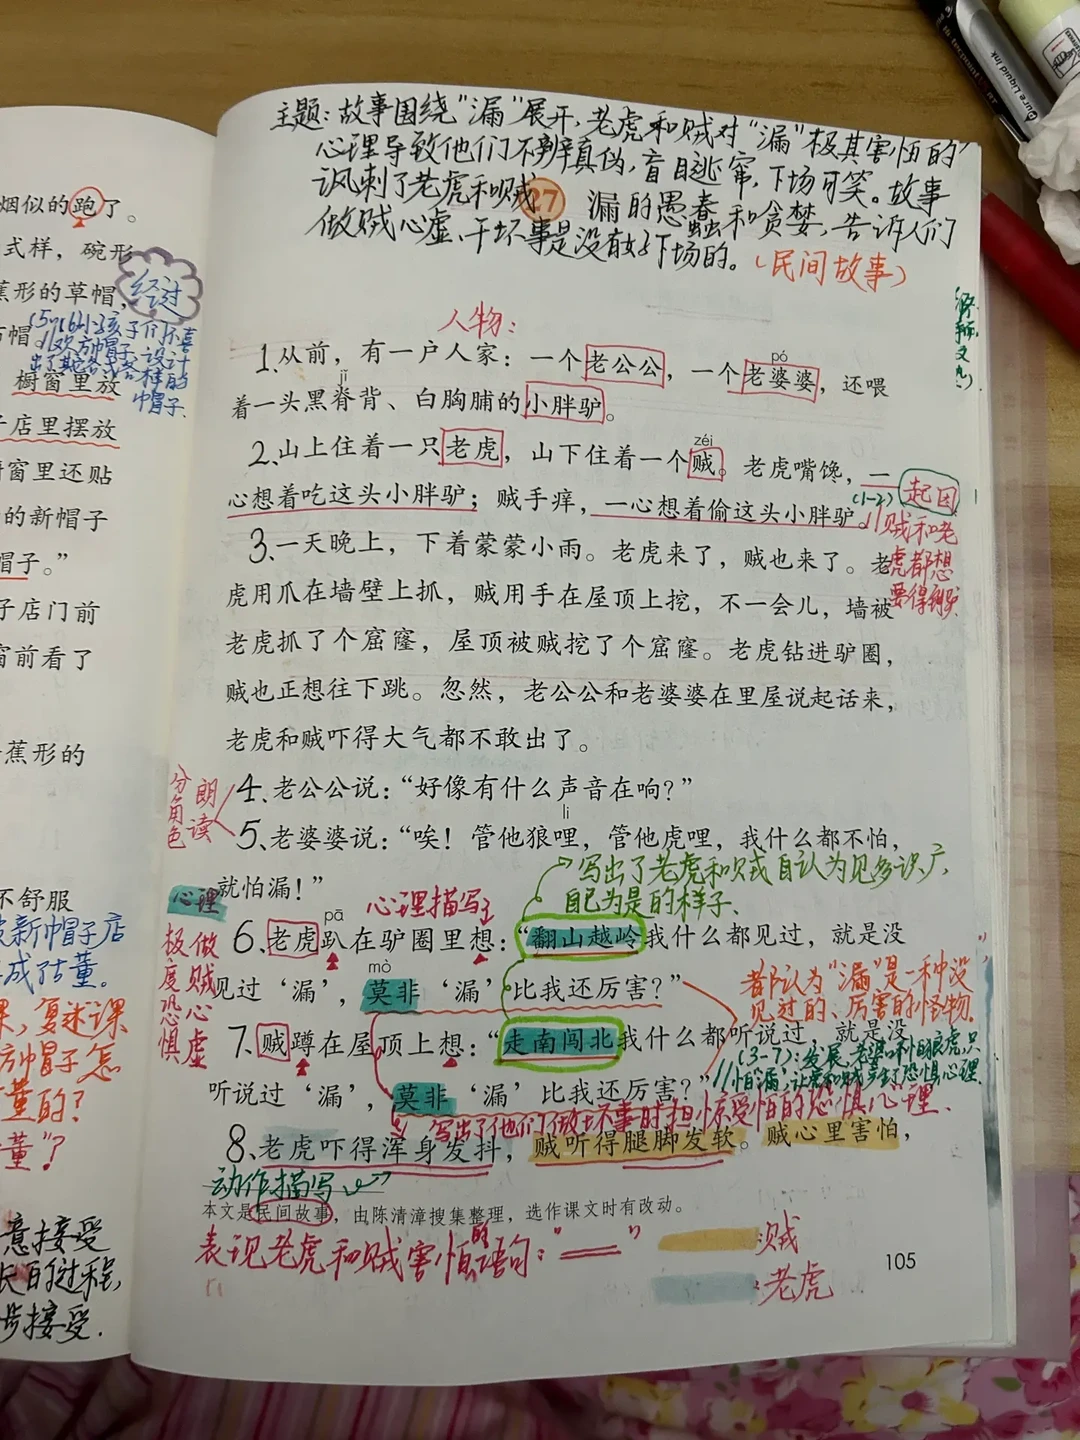 烟似的跑了。
式样，碗形
蕉形的草帽，
经过
橱窗里放
子店里摆放
窗里还贴
的新帽子
帽子。”
子店门前
窗前看了
蕉形的
不舒服
被新帽子店
成了古董。
复述课
方帽子怎
董的？
董”？
意接受
长的过程，
步接受.
主题：故事围绕“漏”展开，老虎和贼对“漏”极其害怕的
心理导致他们不辨真伪，盲目逃窜，下场可笑。故事
讽刺了老虎和贼 27 漏的愚蠢和贪婪，告诉人们
做贼心虚、干坏事是没有好下场的。（民间故事）
人物：
pó
1.从前，有一户人家：一个老公公，一个老婆婆，还喂
jǐ
着一头黑脊背、白胸脯的小胖驴。
zéi
2.山上住着一只老虎，山下住着一个贼。老虎嘴馋，一
心想着吃这头小胖驴；贼手痒，一心想着偷这头小胖驴
(1-2) 起因
贼和老
虎都想
要得到驴
3.一天晚上，下着蒙蒙小雨。老虎来了，贼也来了。老
虎用爪在墙壁上抓，贼用手在屋顶上挖，不一会儿，墙被
老虎抓了个窟窿，屋顶被贼挖了个窟窿。老虎钻进驴圈，
贼也正想往下跳。忽然，老公公和老婆婆在里屋说起话来，
老虎和贼吓得大气都不敢出了。
分角色
朗读
4.老公公说：“好像有什么声音在响？”
li
5.老婆婆说：“唉！管他狼哩，管他虎哩，我什么都不怕，
就怕漏！”
写出了老虎和贼自认为见多识广，
自己为是的样子.
心理
心理描写
极度恐惧
做贼心虚
pā
6.老虎趴在驴圈里想：“翻山越岭我什么都见过，就是没
mò
见过‘漏’，莫非‘漏’比我还厉害？”
都认为“漏”是一种没
见过的、厉害的怪物。
7.贼蹲在屋顶上想：“走南闯北我什么都听说过，就是没
听说过‘漏’，莫非‘漏’比我还厉害？”
写出了他们做坏事时担惊受怕的恐惧心理.
8.老虎吓得浑身发抖，贼听得腿脚发软。贼心里害怕，
动作描写
本文是民间故事，由陈清漳搜集整理，选作课文时有改动。
表现老虎和贼害怕的语句：“══”
贼
老虎
105